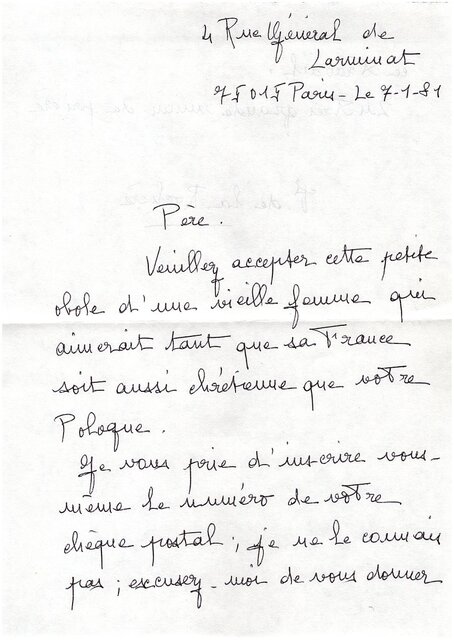 4 Rue Général de
Larminat
75015 Paris - Le 7-1-81
Père.
Veuillez accepter cette petite
obole d'une vieille femme qui
aimerait tant que sa France
soit aussi chrétienne que votre
Pologne.
Je vous prie d'inscrire vous-
même le numéro de votre
chèque postal ; je ne le connais
pas ; excusez-moi de vous donner